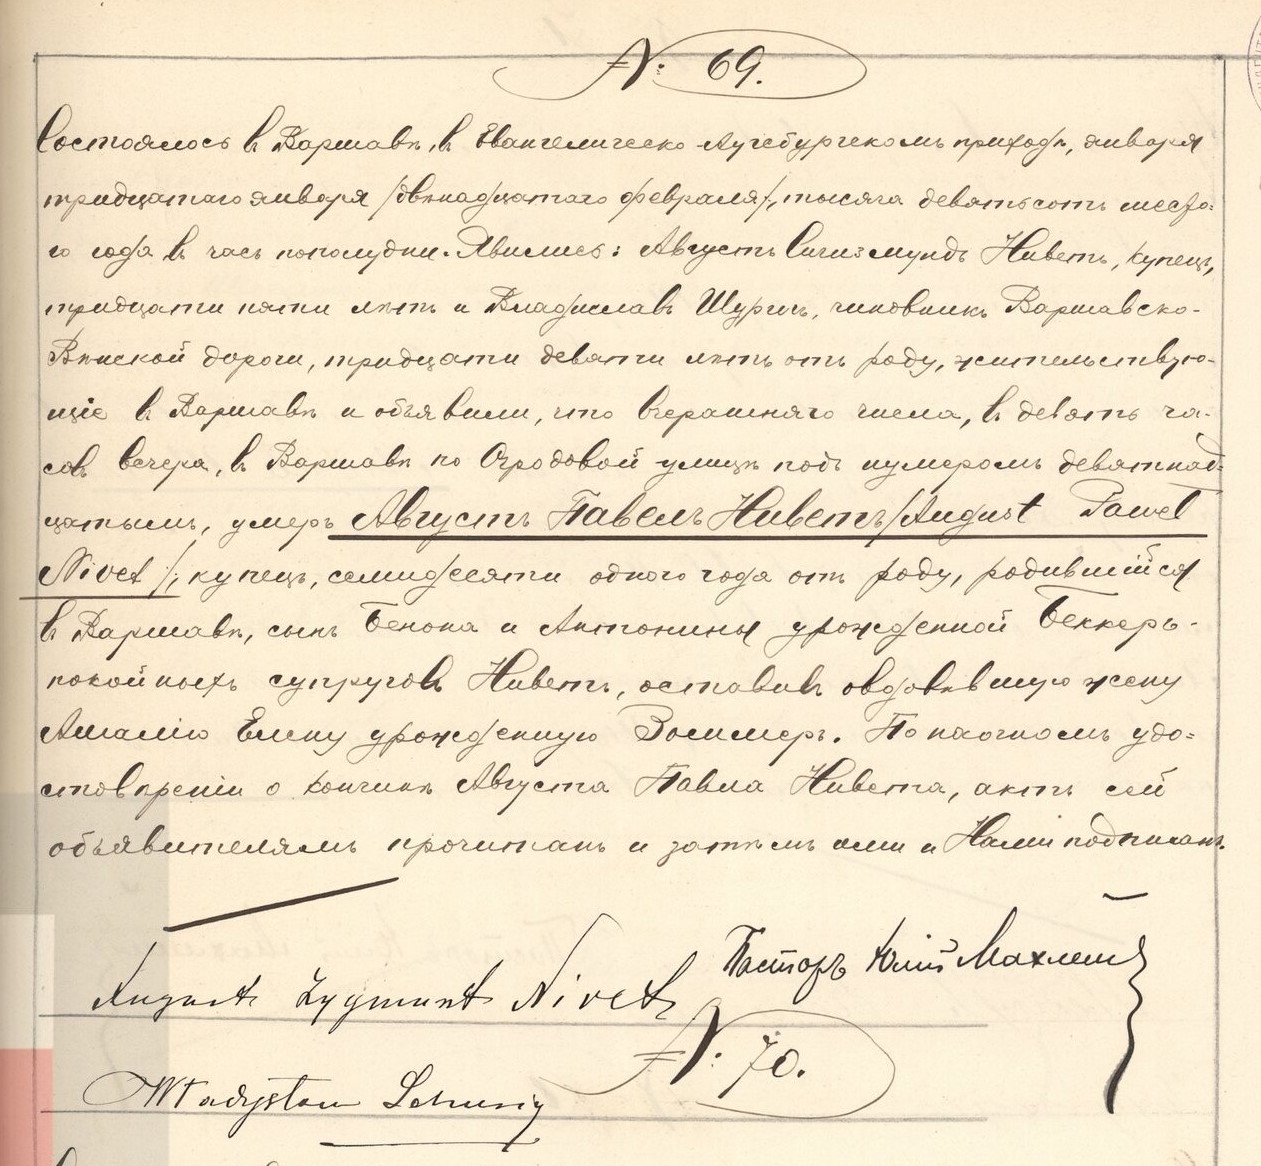 № 69.
Состоялось въ Варшавѣ, въ Евангелическо-Аугсбургскомъ приходѣ, января
тридцатаго января /двѣнадцатаго февраля/, тысяча девятьсотъ шесто-
го года въ часъ пополудни. Явились: Августъ Сигизмундъ Ниветъ, купецъ,
тридцати пяти лѣтъ и Владиславъ Шуригъ, чиновникъ Варшавско-
Вѣнской дороги, тридцати девяти лѣтъ отъ роду, жительствую-
щіе въ Варшавѣ и объявили, что вчерашняго числа, въ девять ча-
совъ вечера, въ Варшавѣ по Огродовой улицѣ подъ нумеромъ девятнад-
цатымъ, умеръ Августъ Павелъ Ниветъ /August Paweł
Nivet/, купецъ, семидесяти одного года отъ роду, родившійся
въ Варшавѣ, сынъ Бенона и Антонины урожденной Беккеръ-
покойныхъ супруговъ Ниветъ, оставивъ овдовѣвшую жену
Амалію Елену урожденную Золлмеръ. По наочномъ удо-
стовѣреніи о кончинѣ Августа Павла Нивета, актъ сей
объявителямъ прочитанъ и затѣмъ ими и Нами подписанъ.
Пасторъ Юлій Махлейдъ
August Zygmunt Nivet
№ 70.
Władysław Schurig